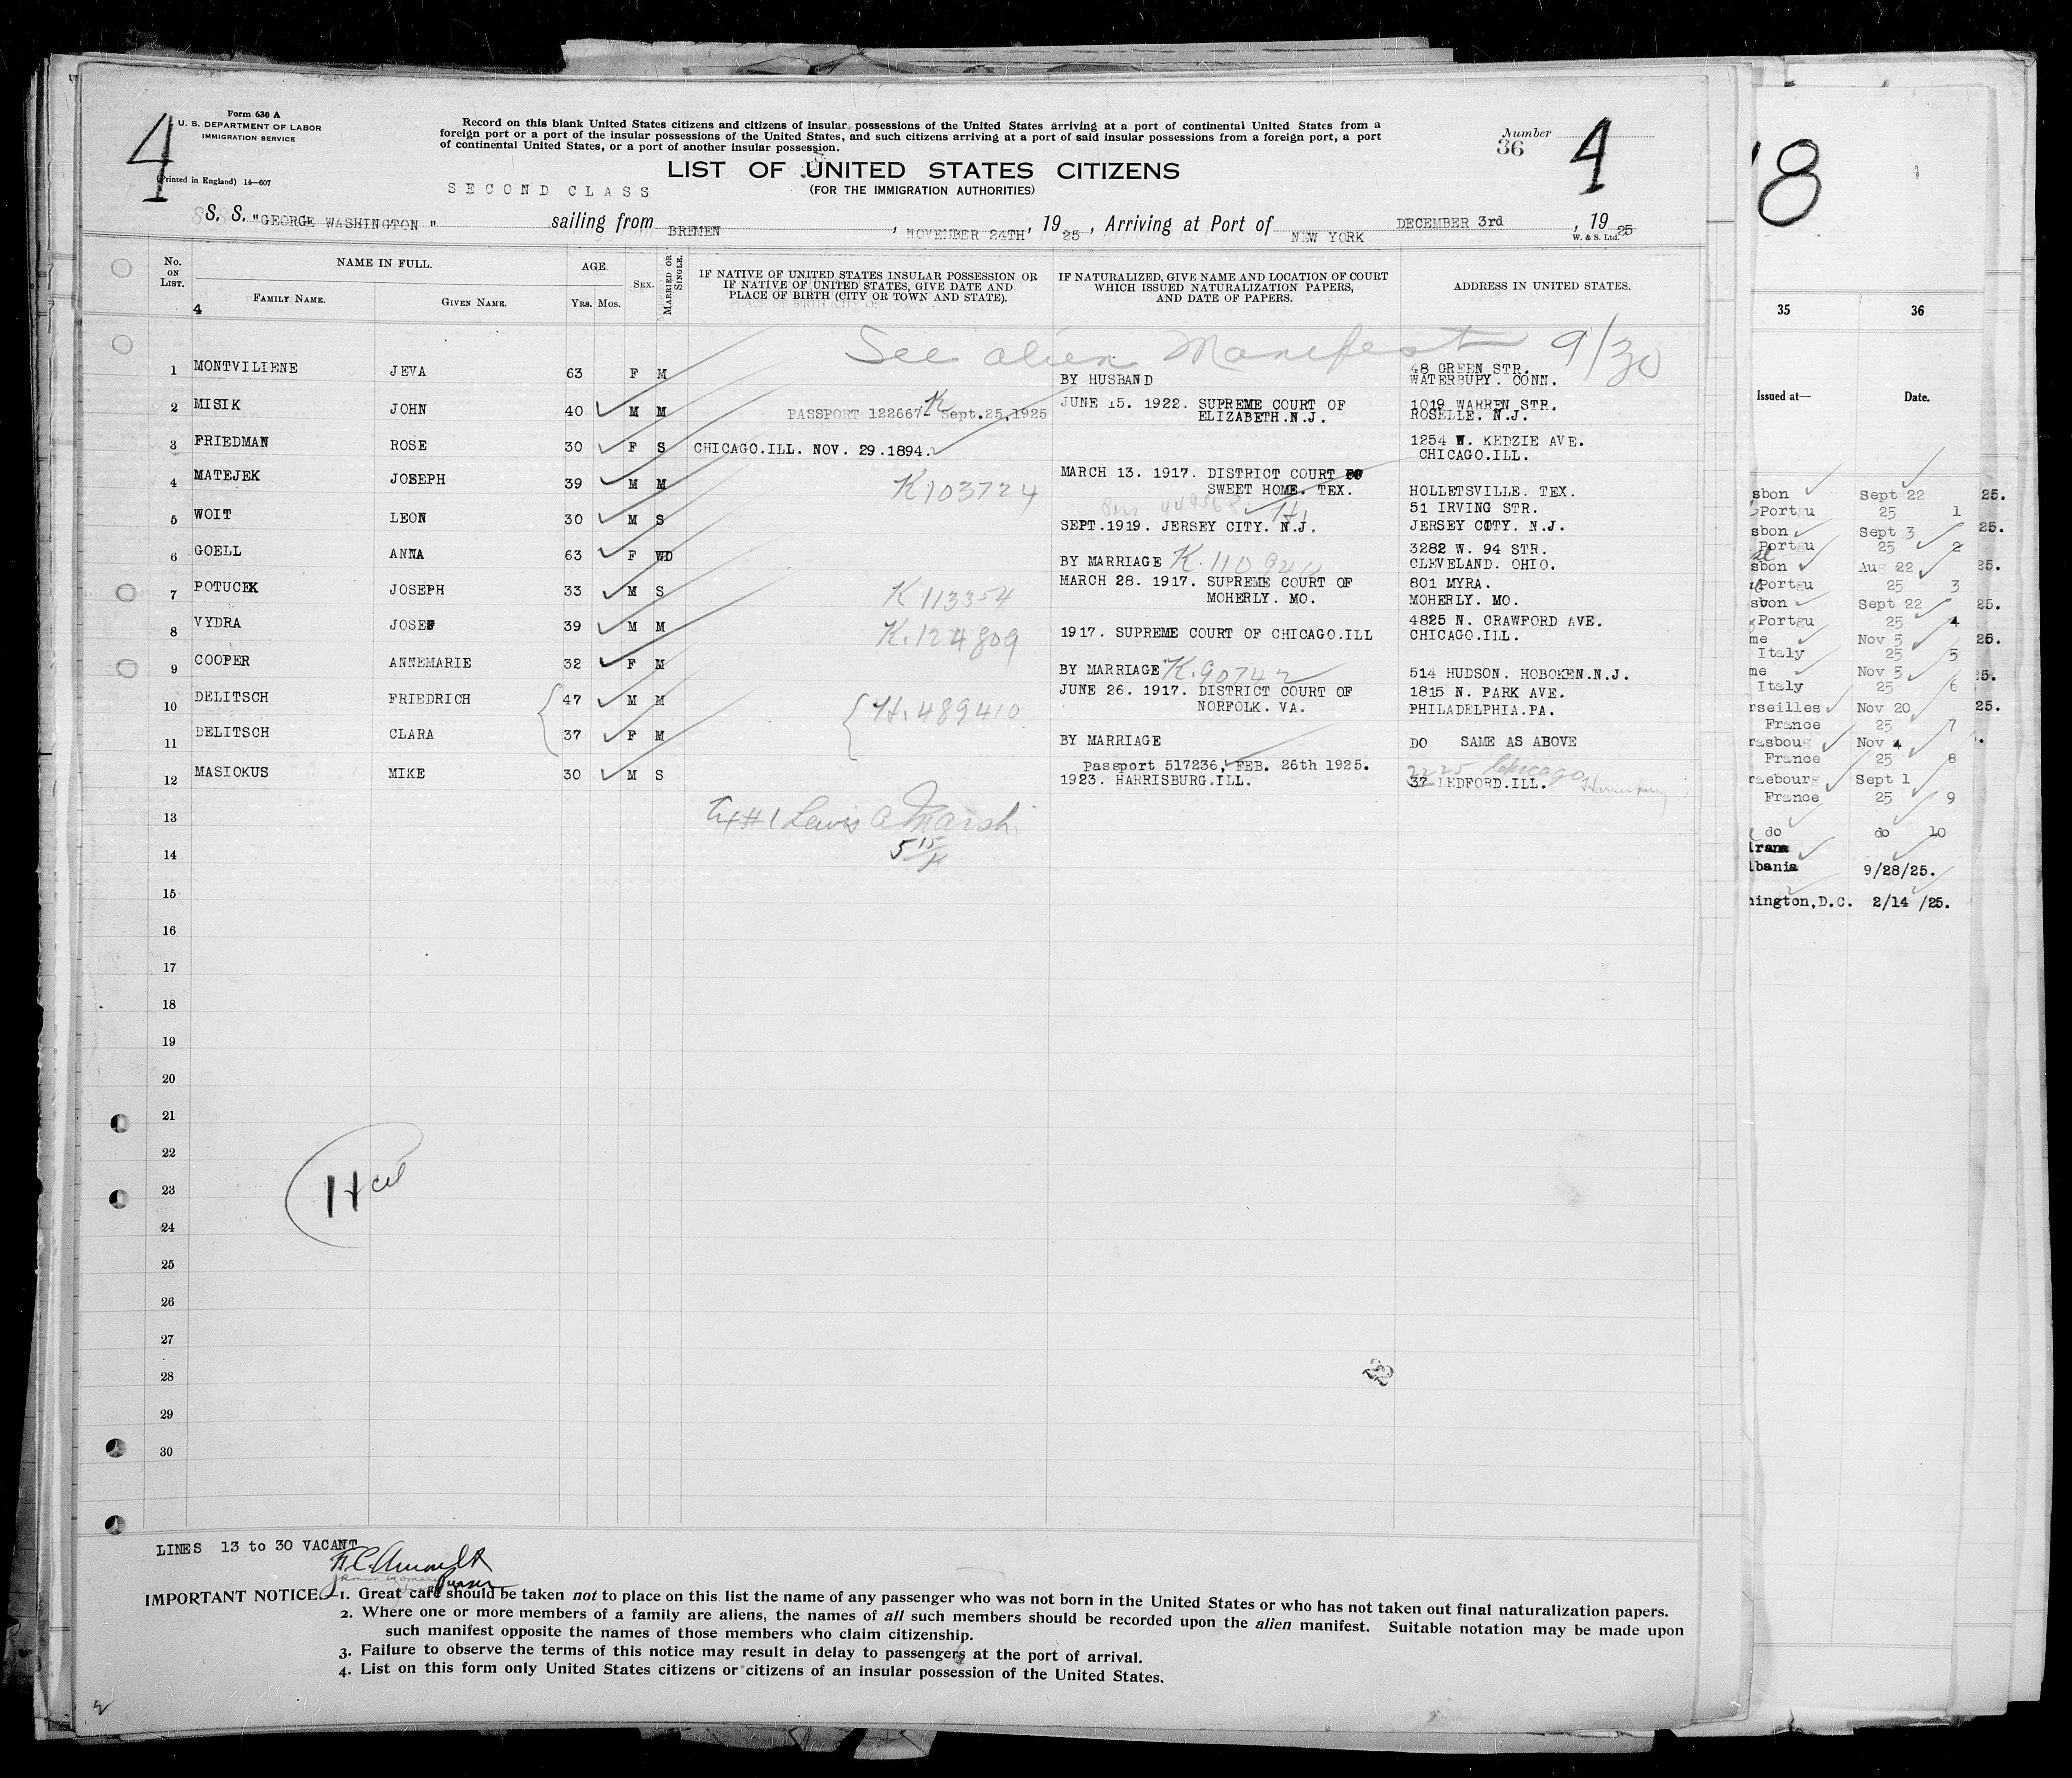 4
Form 630 A
U. S. DEPARTMENT OF LABOR
IMMIGRATION SERVICE
(Printed in England) 14—607
Record on this blank United States citizens and citizens of insular possessions of the United States arriving at a port of continental United States from a
foreign port or a port of the insular possessions of the United States, and such citizens arriving at a port of said insular possessions from a foreign port, a port
of continental United States, or a port of another insular possession.
Number
36
4
LIST OF UNITED STATES CITIZENS
(FOR THE IMMIGRATION AUTHORITIES)
SECOND CLASS
S. S. "GEORGE WASHINGTON" sailing from BREMEN, NOVEMBER 24TH, 1925, Arriving at Port of NEW YORK DECEMBER 3rd, 1925
W. & S. Ltd.
No. ON LIST. NAME IN FULL. AGE. SEX. MARRIED OR SINGLE. IF NATIVE OF UNITED STATES INSULAR POSSESSION OR IF NATIVE OF UNITED STATES, GIVE DATE AND PLACE OF BIRTH (CITY OR TOWN AND STATE). IF NATURALIZED, GIVE NAME AND LOCATION OF COURT WHICH ISSUED NATURALIZATION PAPERS, AND DATE OF PAPERS. ADDRESS IN UNITED STATES.
FAMILY NAME. GIVEN NAME. YRS. MOS.
4
See alien Manifest 9/30
1 MONTVILIENE JEVA 63 F M BY HUSBAND 48 GREEN STR. WATERBURY. CONN.
2 MISIK JOHN 40 M M PASSPORT 122667 K Sept.25,1925 JUNE 15. 1922. SUPREME COURT OF ELIZABETH.N.J. 1019 WARREN STR. ROSELLE. N.J.
3 FRIEDMAN ROSE 30 F S CHICAGO.ILL. NOV. 29.1894. 1254 W. KEDZIE AVE. CHICAGO.ILL.
4 MATEJEK JOSEPH 39 M M K103724 MARCH 13. 1917. DISTRICT COURT OF SWEET HOME. TEX. HOLLETSVILLE. TEX.
5 WOIT LEON 30 M S SEPT.1919. JERSEY CITY. N.J. 51 IRVING STR. JERSEY CITY. N.J.
6 GOELL ANNA 63 F WD BY MARRIAGE 3282 W. 94 STR. CLEVELAND. OHIO.
7 POTUCEK JOSEPH 33 M S K 113354 MARCH 28. 1917. SUPREME COURT OF MOHERLY. MO. 801 MYRA. MOHERLY. MO.
8 VYDRA JOSEF 39 M M K.124809 1917. SUPREME COURT OF CHICAGO.ILL 4825 N. CRAWFORD AVE. CHICAGO.ILL.
9 COOPER ANNEMARIE 32 F M BY MARRIAGE K.90742 514 HUDSON. HOBOKEN.N.J.
10 DELITSCH FRIEDRICH 47 M M H.489410 JUNE 26. 1917. DISTRICT COURT OF NORFOLK. VA. 1815 N. PARK AVE. PHILADELPHIA.PA.
11 DELITSCH CLARA 37 F M BY MARRIAGE DO SAME AS ABOVE
12 MASIOKUS MIKE 30 M S Passport 517236, FEB. 26th 1925. 1923. HARRISBURG.ILL. 2225 Chicago 37 LEDFORD.ILL.
13 #1 Lewis A Marsh
14
15
16
17
18
19
20
21
22
23
24
25
26
27
28
29
30
22
LINES 13 to 30 VACANT
Purser
IMPORTANT NOTICE.—1. Great care should be taken not to place on this list the name of any passenger who was not born in the United States or who has not taken out final naturalization papers.
2. Where one or more members of a family are aliens, the names of all such members should be recorded upon the alien manifest. Suitable notation may be made upon
such manifest opposite the names of those members who claim citizenship.
3. Failure to observe the terms of this notice may result in delay to passengers at the port of arrival.
4. List on this form only United States citizens or citizens of an insular possession of the United States.
8
35 36
Issued at— Date.
sbon Sept 22 25.
Portgu 25 1
sbon Sept 3 25.
Portgu 25 2
sbon Aug 22 25.
Portgu 25 3
sbon Sept 22 25.
Portgu 25 4
me Nov 5 25.
Italy 25 5
me Nov 5 25.
Italy 25 6
rseilles Nov 20 25.
France 25 7
rasboug Nov 4
France 25 8
raebourg Sept 1
France 25 9
do do 10
irana
lbania 9/28/25.
hington,D.C. 2/14 /25.